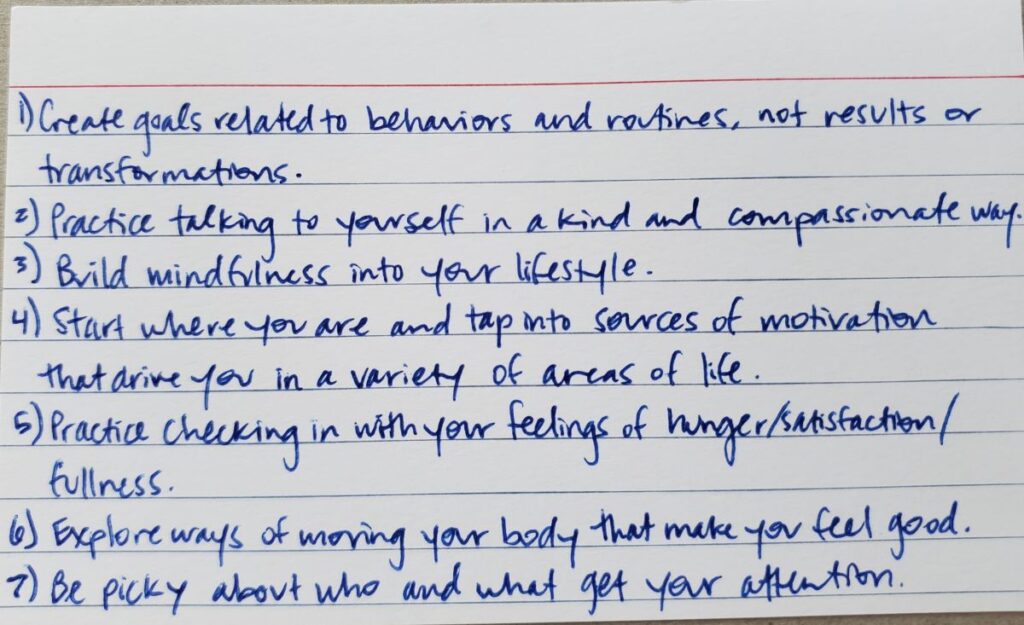 1) Create goals related to behaviors and routines, not results or
transformations.
2) Practice talking to yourself in a kind and compassionate way.
3) Build mindfulness into your lifestyle.
4) Start where you are and tap into sources of motivation
that drive you in a variety of areas of life.
5) Practice checking in with your feelings of hunger/satisfaction/
fullness.
6) Explore ways of moving your body that make you feel good.
7) Be picky about who and what get your attention.